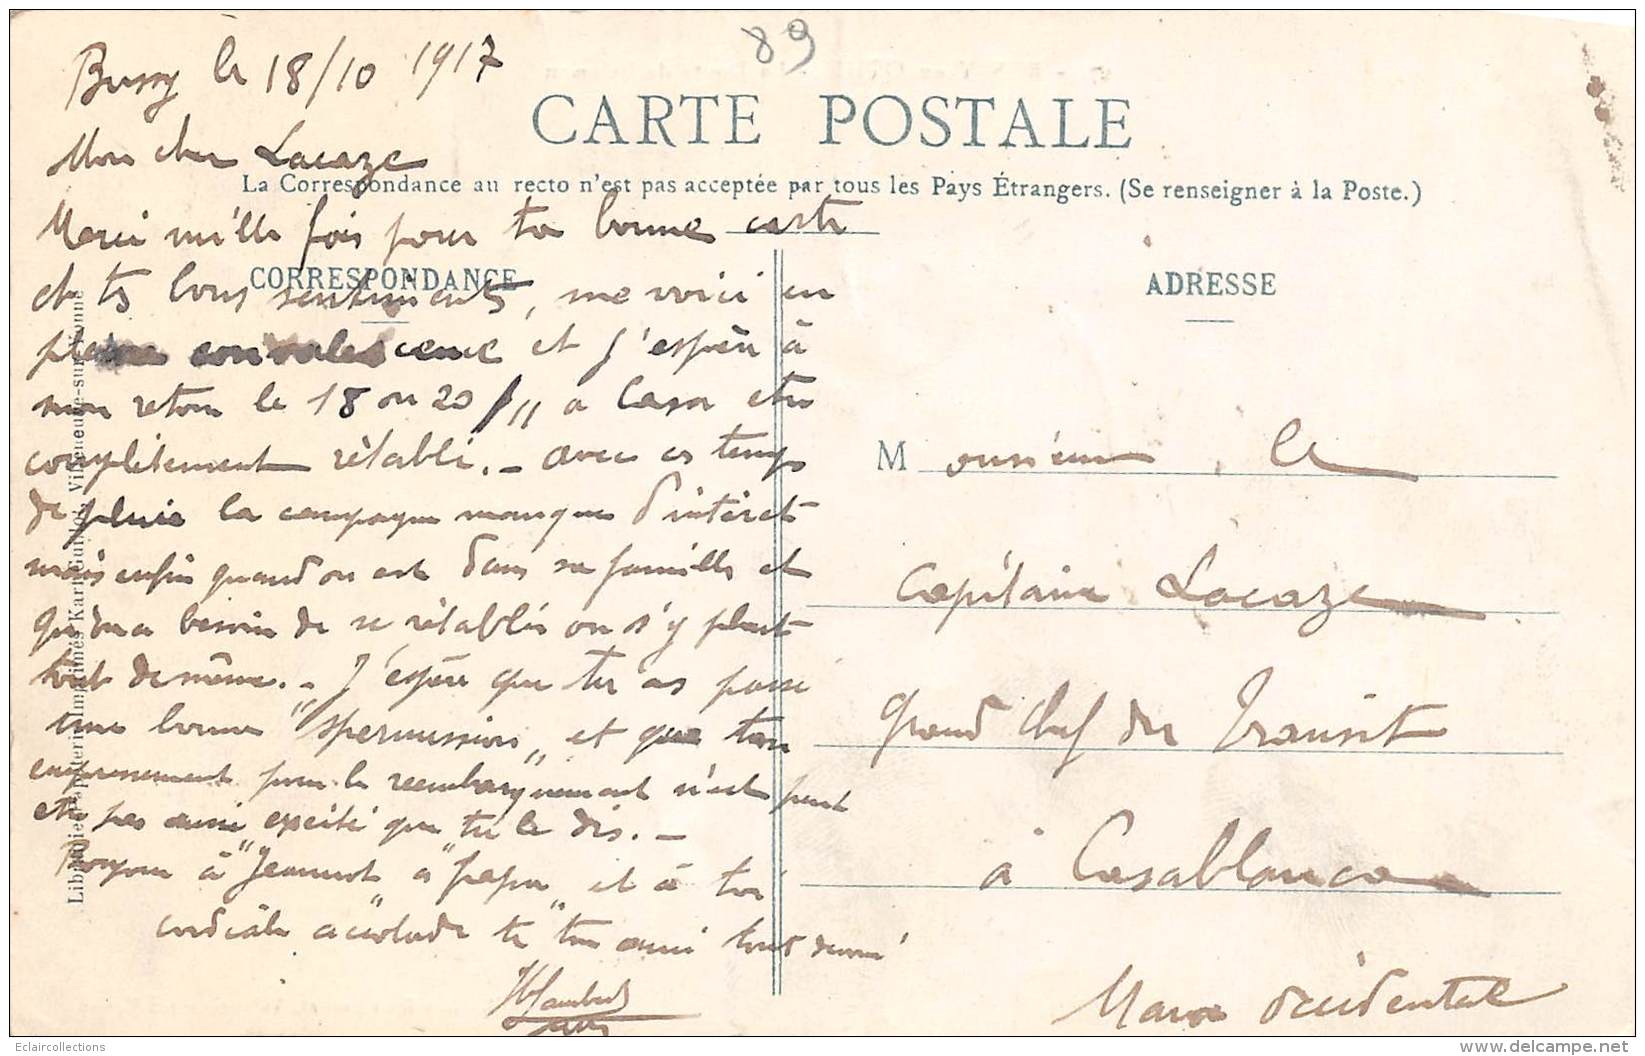 89
Bussy le 18/10 1917
CARTE POSTALE
Mon cher Lacaze
La Correspondance au recto n'est pas acceptée par tous les Pays Étrangers. (Se renseigner à la Poste.)
Merci mille fois pour ta bonne carte
CORRESPONDANCE
et tes bons sentiments, me voici en
pleine convalescence et j'espère à
mon retour le 18 ou 20 /11 a Casa etre
complètement rétabli. _ avec ces temps
de pluie la campagne manque d'intéret
mais enfin quand on est dans sa famille et
qu'on a besoin de se rétablir on s'y plait
tout de même. _ J'espère que tu as passé
une bonne "spermission" et que ton
empressement pour le reembarquement n'est peut
etre pas aussi excité que tu le dis. _
à "Jeannot" a "papa" et à toi
cordiale accolade te ton ami tout devoué
Librairie Papeterie Imprimés Karl Guillot, Villeneuve-sur-Yonne
ADRESSE
Monsieur le
Capitaine Lacaze
Grand chef du Transit
à Casablanca
Maroc Occidental
Eclaircollections
delcampe.net